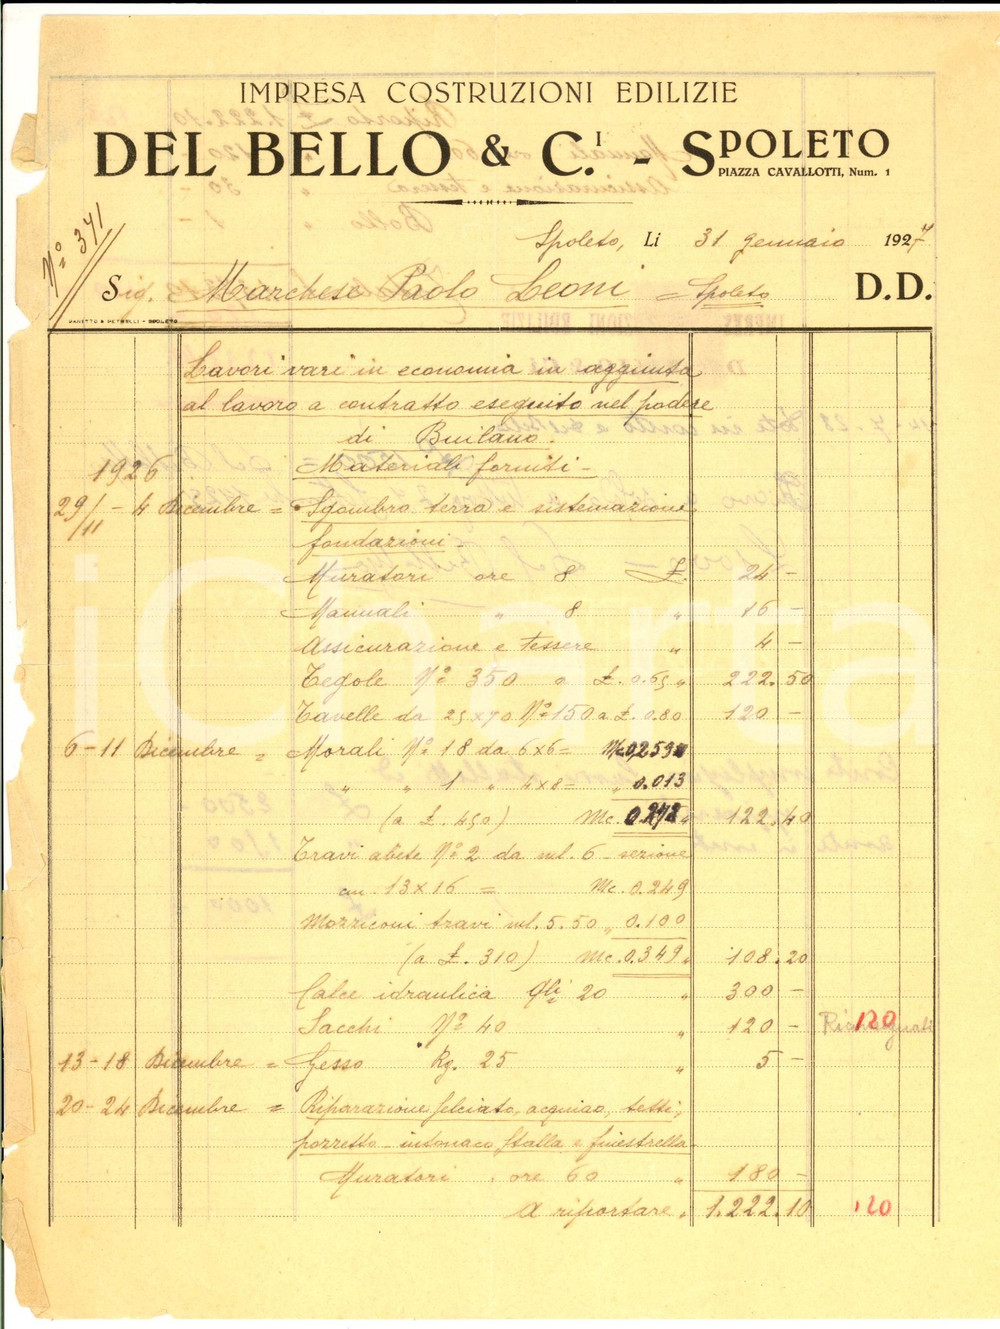 IMPRESA COSTRUZIONI EDILIZIE
DEL BELLO & C.I - SPOLETO
PIAZZA CAVALLOTTI, Num. 1
Nº 371
Spoleto, Li 31 gennaio 1927
Sig. Marchese Paolo Leoni = Spoleto D.D.
Lavori vari in economia in aggiunta
al lavoro a contratto eseguito nel podere
di
1926 Materiali forniti -
29/11 - 4 Dicembre = Sgombro terra e sistemazione
fondazioni -
Muratori ore 8 £. 24 -
Manuali " 8 " 16 -
Assicurazione e tessere " 4 -
Tegole Nº 350 a £. 0.65 " 222.50
Tavelle da 25x70 Nº 150 a £. 0.80 120 -
6-11 Dicembre = Morali Nº 18 da 6x6 = Mc. 0,259
" " 1 " 4x8 = " 0.013
(a £. 450) Mc. 0.272 " 122.40
Travi abete Nº 2 da ml. 6 - sezione
cm. 13x16 = Mc. 0.249
Mozziconi travi ml. 5.50 " 0.100
(a £. 310) Mc. 0.349 " 108.20
Calce idraulica Qli 20 " 300 -
Sacchi Nº 40 " 120 - 120
13-18 Dicembre = Gesso Kg. 25 " 5 -
20-24 Dicembre = Riparazione selciato, acquaio, tetti,
pozzetto intonaco stalla e finestrella
Muratori ore 60 " 180 -
A riportare " 1.222.10 120
iCharta